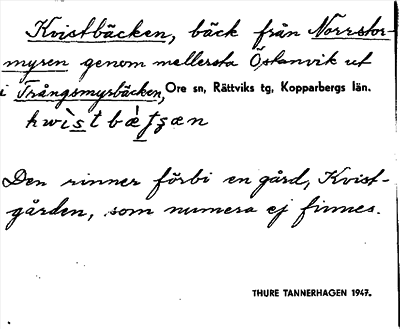 Kvistbäcken, bäck från Norrstor-
myren genom mellersta Östanvik ut
i Trångsmyrbäcken, Ore sn, Rättviks tg, Kopparbergs län.
Den rinner förbi en gård, Kvist-
gården, som numera ej finnes.
THURE TANNERHAGEN 1947.